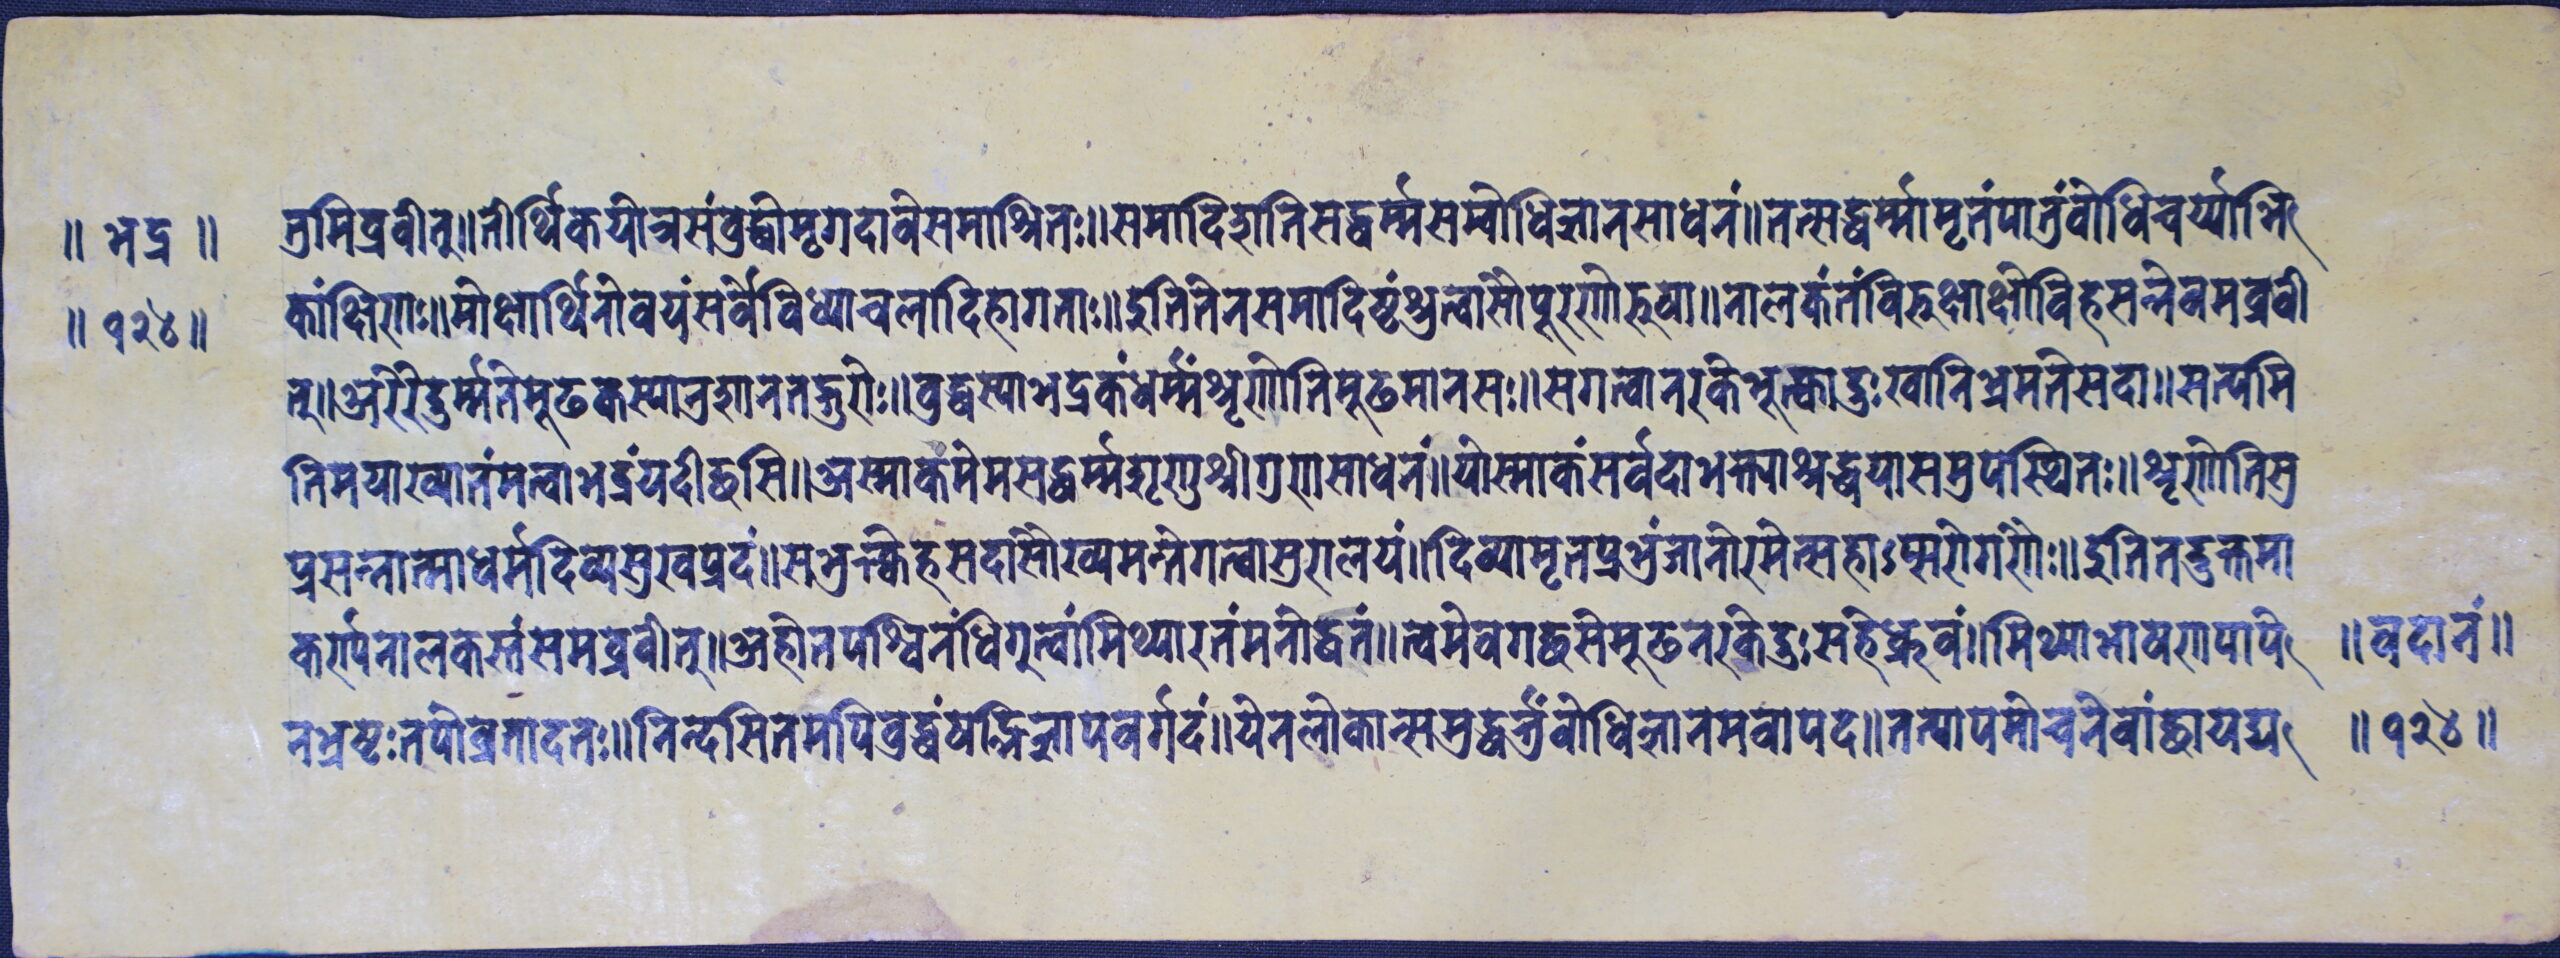 ॥ भद्र ॥
॥ १२४ ॥
त्तमेमब्रवीत्॥तीर्थिकयोत्रसंबुद्धोमृगदावेसमाश्रितः॥समादिशतिसद्धर्म्मसम्बोधिज्ञानसाधनं॥तत्सद्धर्म्मामृतंपातुंबोधिचर्य्याभि
कांक्षिणः॥मोक्षार्थिनोवयंसर्वेविंध्याचलादिहागताः॥इतितेनसमादिष्टंश्रुत्वासौपूरणोरुषा॥नालकंतंविरुक्षाक्षोविहसन्नेवमब्रवी
त्॥अरेरेदुर्म्मतेमूढकस्यानुशानतद्गुरोः॥बुद्धस्याभद्रकंधर्म्मंशृणोतिमूढमानसः॥सगत्वानरकेभूक्त्वादुःखानिभ्रमतेसदा॥सत्यमि
तिमयाख्यातंमत्वाभद्रंयदीछसि॥अस्माकमेमसद्धर्म्मशृणुश्रीगुणसाधनं॥योस्माकंसर्वदाभक्त्याश्रद्धयासमुपस्थितः॥शृणोतिसु
प्रसन्नात्माधर्मदिव्यसुखप्रदं॥सभुक्त्वेहसदासौख्यमन्तेगत्वासुरालयं॥दिव्यामृतप्रभुंजानोरमेत्सहाऽप्सरोगणैः॥इतितदुक्तमा
कर्ण्यनालकस्तंसमब्रवीत्॥अहोतपश्विनंधिगुत्वांमिथ्यारतंमनोद्धतं॥त्वमेवगछसेमूढनरकेदुःसहेध्रुवं॥मिथ्याभाषणपापे
नभ्रष्टःतपोव्रतादतः॥निन्दसितमपिबुद्धंषडभिज्ञापवर्गदं॥येनलोकान्समुद्धर्त्तुंबोधिज्ञानमवापदे॥तत्पापमोचनेवांछायद्य
॥ वदानं ॥
॥ १२४ ॥